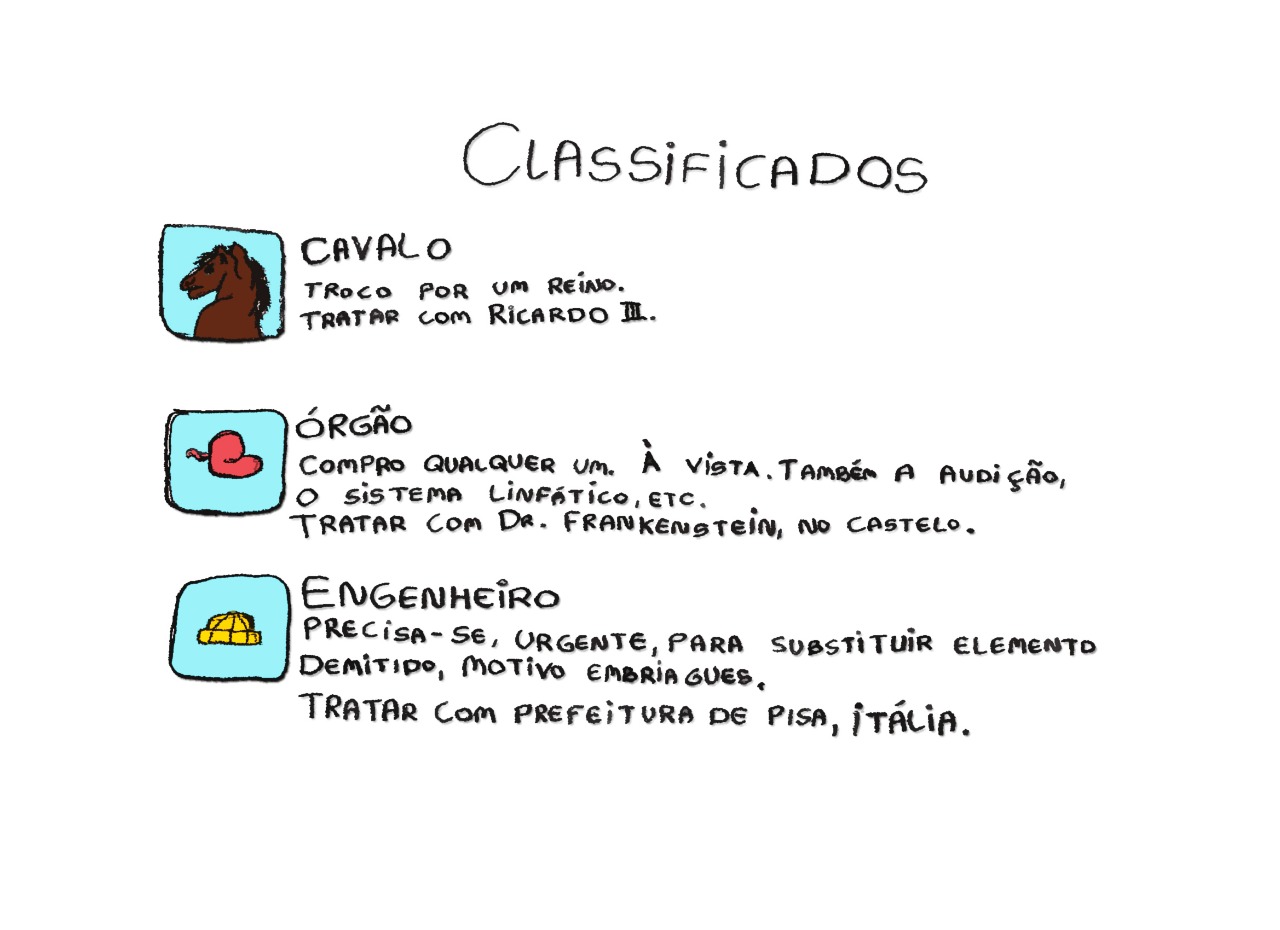 CLASSIFICADOS
CAVALO
TROCO POR UM REINO.
TRATAR COM RICARDO III.
ÓRGÃO
COMPRO QUALQUER UM. À VISTA. TAMBÉM A AUDIÇÃO,
O SISTEMA LINFÁTICO, ETC.
TRATAR COM DR. FRANKENSTEIN, NO CASTELO.
ENGENHEIRO
PRECISA-SE, URGENTE, PARA SUBSTITUIR ELEMENTO
DEMITIDO, MOTIVO EMBRIAGUES.
TRATAR COM PREFEITURA DE PISA, ITÁLIA.